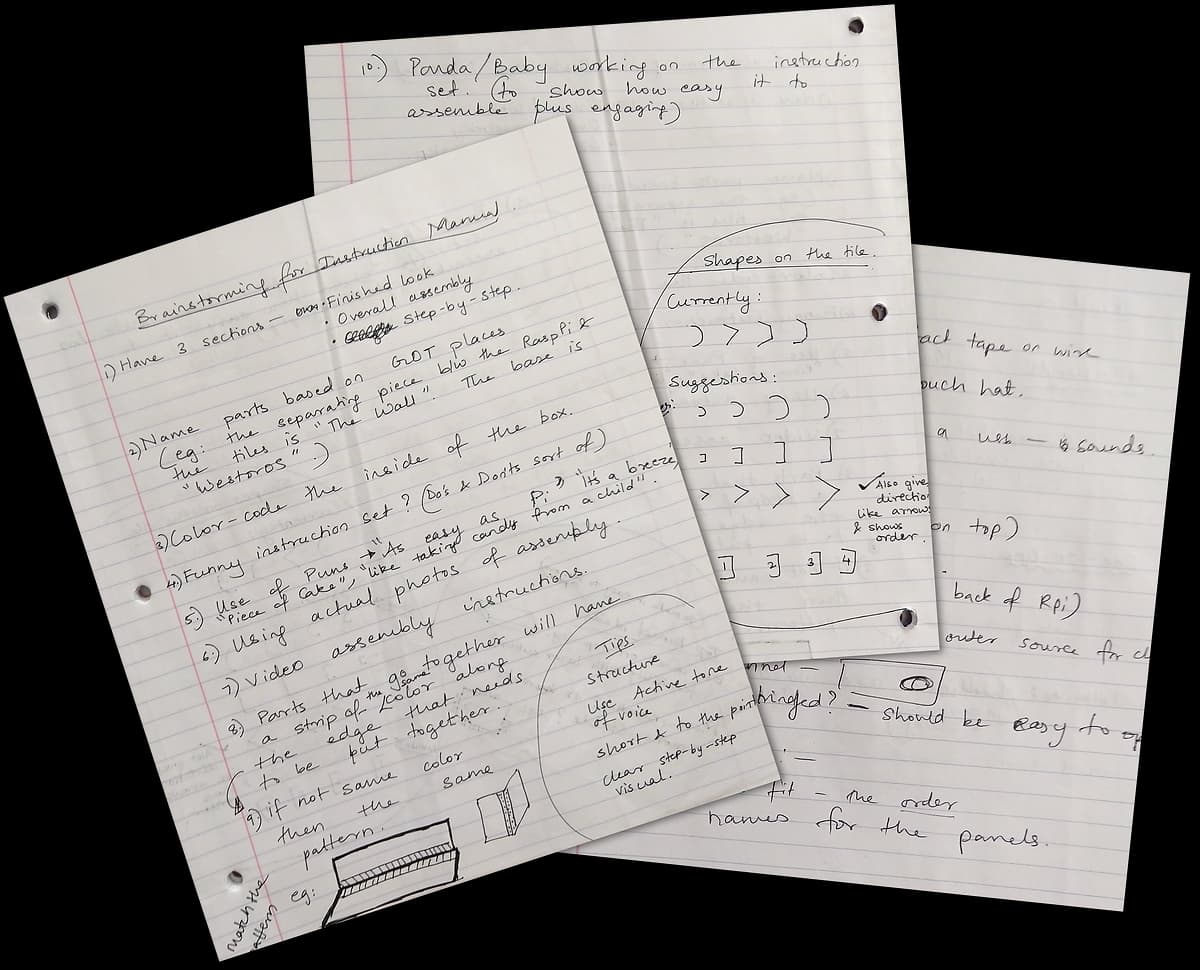 Brainstorming for Instruction Manual.
1) Have 3 sections — • Finished look
• Overall assembly
• Step-by-step.
2) Name parts based on GOT places
(eg: the separating piece b/w the RaspPi &
the tiles is "The Wall". The base is
"Westoros".)
3) Color-code the inside of the box.
4.) Funny instruction set? (Do's & Don'ts sort of)
5.) Use of Puns → "As easy as Pi", "It's a breeze,
"Piece of Cake", "like taking candy from a child".
6.) Using actual photos of assembly.
7) Video assembly instructions.
8) Parts that go together will have
a strip of the same color along
the edge that needs
to be put together.
9) if not same color
then the same
pattern.
eg:
Match the
Tips
Structure
Use Active tone
of voice
short & to the point
clear step-by-step
visual.
10.) Panda/Baby working on the instruction
set. (to show how easy it to
assemble plus engaging)
Shapes on the tile.
Currently:
Suggestions:
✓ Also give
direction
like arrows
& shows
order.
1 2 3 4
tape or wire
hat.
a use — sounds.
on top)
back of Rpi)
outer source for
hinged? — should be easy to
fit — the order
names for the panels.